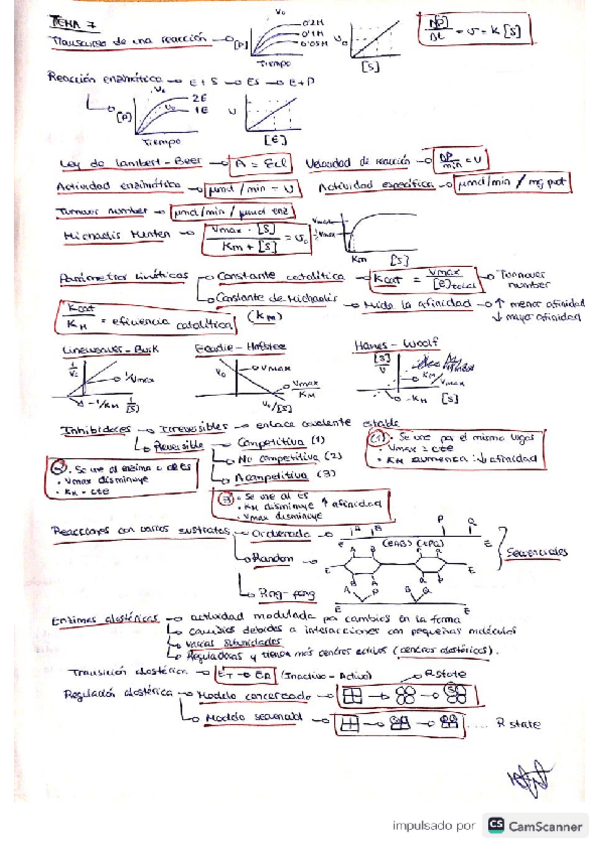 TEMA 7
Transcurso de una reacción → [P] V₀ 0'2M 0'1M 0'05M Tiempo V₀ [S] Δ[P] / Δt = v = K [S]
Reacción enzimática → E + S → ES → E + P
[P] V₀ V₀ 2E 1E Tiempo v [E]
Ley de Lambert-Beer → A = εcl Velocidad de reacción → ΔP / min = v
Actividad enzimática → μmol / min = v Actividad específica → μmol/min / mg prot
Turnover number → μmol/min / μmol enz
Michaelis Menten → Vmax · [S] / Km + [S] = v₀ Vmax ½ Vmax Km [S]
Parámetros cinéticos → Constante catalítica → Kcat = Vmax / [E]total → Turnover number
→ Constante de Michaelis (KM) → Mide la afinidad → ↑ menor afinidad
↓ mayor afinidad
Kcat / KM = eficiencia catalítica
Lineweaver-Burk Eadie-Hofstee Hanes-Woolf
1/V₀ 1/Vmax -1/KM 1/[S]
V₀ Vmax Vmax/KM V₀/[S]
[S]/V -KM [S]
Inhibidores → Irreversibles → enlace covalente estable
→ Reversible → Competitiva (1)
→ No competitiva (2)
→ Acompetitiva (3)
(1) · Se une por el mismo lugar
· Vmax = cte
· KM aumenta: ↓ afinidad
(2) · Se une al enzima o al ES
· Vmax disminuye
· KM = cte
(3) · Se une al ES
· KM disminuye ↑ afinidad
· Vmax disminuye
Reacciones con varios sustratos → Ordenada → A B P Q E (EAB) (EPQ) E
→ Random → E A B B A P Q Q P E
→ Ping-pong → A P B Q E E
Secuenciales
Enzimas alostéricas → actividad modulada por cambios en la forma
→ cambios debidos a interacciones con pequeñas moléculas
→ varias subunidades
→ Reguladoras y tienen más centros activos (centros alostéricos).
Transición alostérica → ET → ER (Inactivo - Activo) → R state
Regulación alostérica → Modelo concertado → S
→ Modelo secuencial → ..... R state
impulsado por CS CamScanner